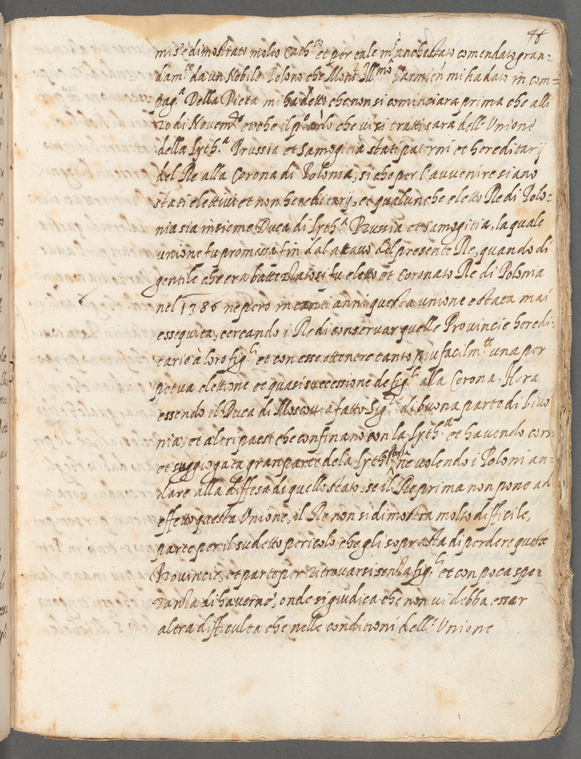 mi s'è dimostrato molto Cath.co et per tale m'è anche stato comendato gran=
dam.te da un Nobile Polono che Mons.r Ill.mo Varmien mi ha dato in com=
pag.a Della Dieta mi ha detto che non si cominciara prima che alli
20 di Novemb. et che il p.o che vi si tratti sarà dell'Unione
della Lyth.a Prussia et Samogitia stati paterni et hereditarij
del Re alla Corona di Polonia, si che per l'avvenire siano
stati elettivi et non hereditarij, et qualunche eletto Re di Polo=
nia sia insieme Duca di Lyth.a Russia et Samogitia, la quale
unione fu promessa fin dal attavo del presente Re, quando di
gentile che era battezzatosi fu eletto et coronato Re di Polonia
nel 1386 ne però in tanti anni questa unione è stata mai
esseguita, cercando i Re di conservar quelle Provincie heredi=
tarie a loro fig.li et con esse ottenere tanto più facilm.te una per
petua elettione et quasi successione de fig.li alla Corona. Hora
essendo il Duca di Moscovia fatto Sig.re di buona parte di Livo
nia, et altri paesi che confinano con la Lyth.a et havendo cors
et suggiogata gran parte de la Lyth.a ne volendo i Poloni an=
dare alla diffesa di quello stato, se il Re prima non pone ad
effetto questa Unione, il Re non si dimostra molto difficile,
parte per il sudetto pericolo che gli soprasta di perdere queste
Provincie, et parte per ritrovarsi senza fig.li et con poca spe=
ranza di haverne, onde si giudica che non vi debba essar
altra difficulta che nelle conditioni dell'Unione